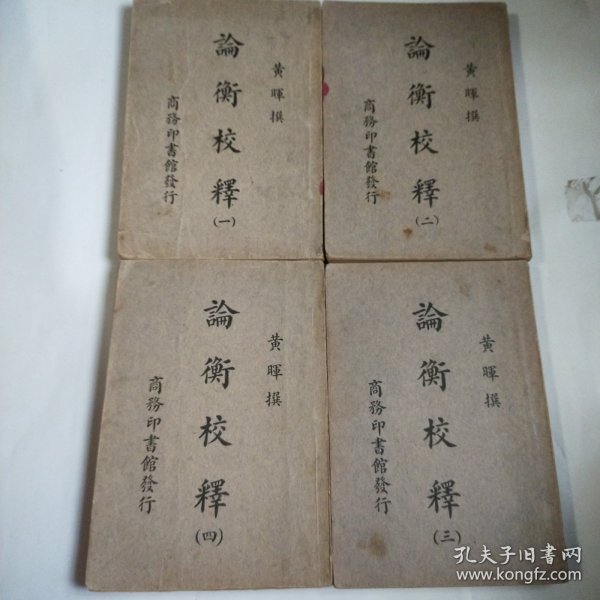 黃暉撰
論衡校釋
(一)
商務印書館發行
黃暉撰
論衡校釋
(二)
商務印書館發行
黃暉撰
論衡校釋
(三)
商務印書館發行
黃暉撰
論衡校釋
(四)
商務印書館發行
孔夫子旧书网
www.kongfz.com